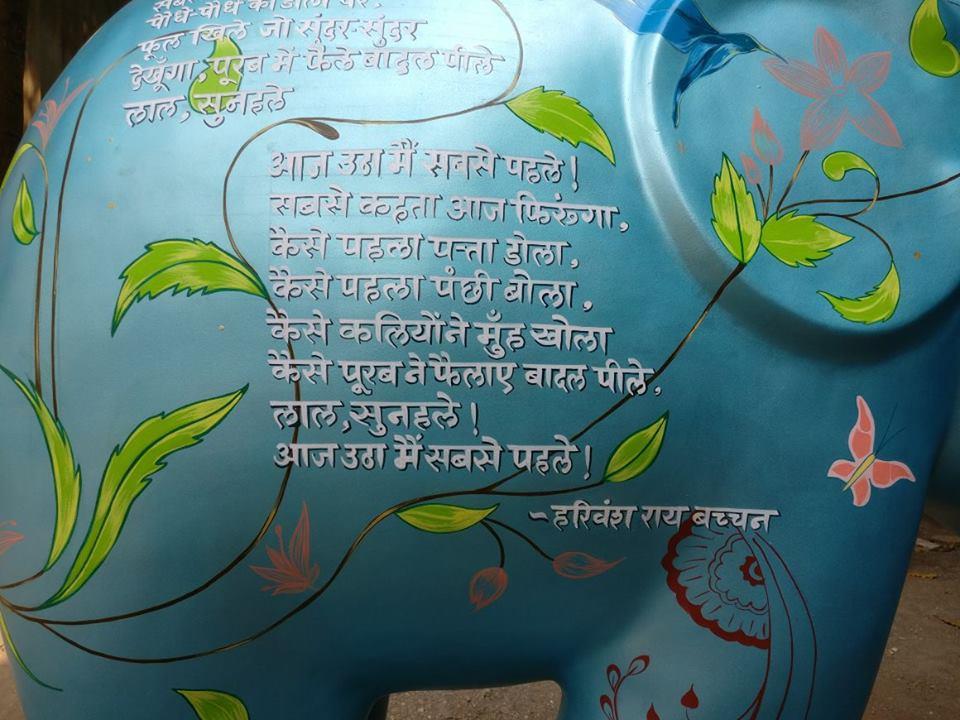 पौधे-पौधे की डाली पर,
फूल खिले जो सुंदर-सुंदर
देखूँगा, पूरब में फैले बादल पीले
लाल, सुनहले
आज उठा मैं सबसे पहले!
सबसे कहता आज फिरूंगा,
कैसे पहला पत्ता डोला,
कैसे पहला पंछी बोला,
कैसे कलियों ने मुँह खोला
कैसे पूरब ने फैलाए बादल पीले,
लाल, सुनहले!
आज उठा मैं सबसे पहले!
~ हरिवंश राय बच्चन